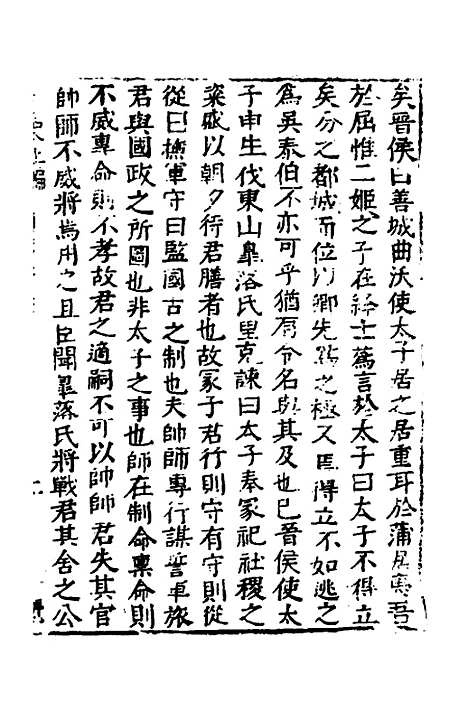 矣晉侯曰善城曲沃使太子居之居重耳於蒲居夷吾
於屈惟二姬之子在絳士蔿言於太子曰太子不得立
矣分之都城而位以卿先為之極又焉得立不如逃之
為吳泰伯不亦可乎猶有令名與其及也已晉侯使太
子申生伐東山臯落氏里克諫曰太子奉冢祀社稷之
粢盛以朝夕待君膳者也故冢子君行則守有守則從
從曰撫軍守曰監國古之制也夫帥師專行謀誓軍旅
君與國政之所圖也非太子之事也師在制命稟命則
不威專命則不孝故君之適嗣不可以帥師君失其官
帥師不威將焉用之且臣聞臯落氏將戰君其舍之公